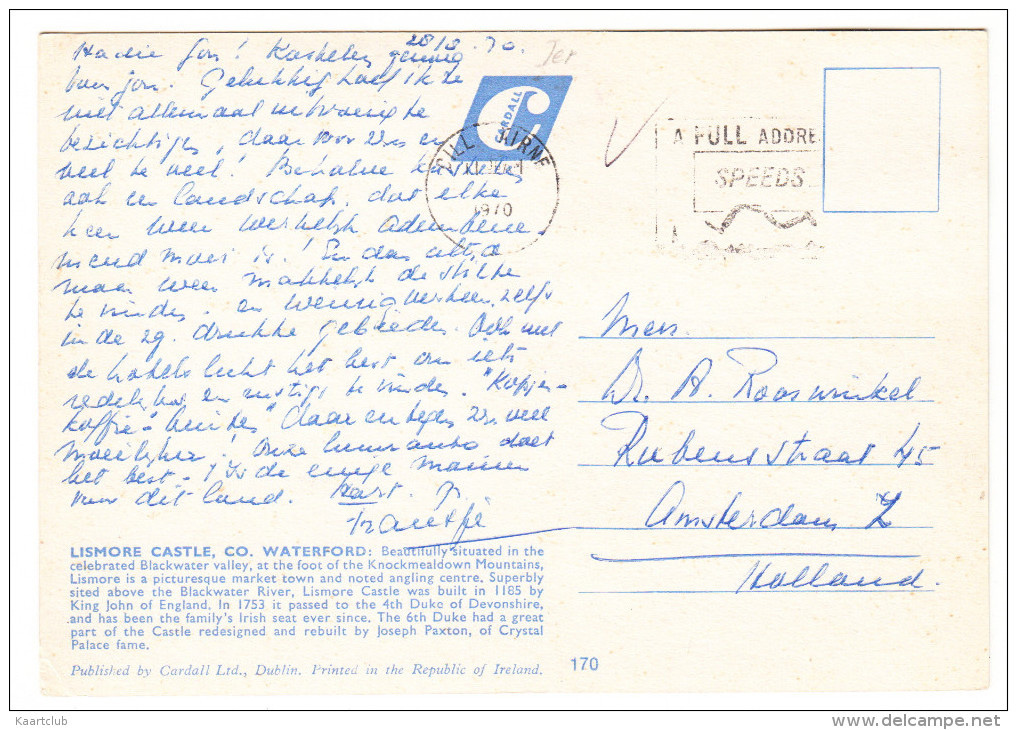 Kastelen genoeg
Gelukkig hoef ik ze
niet allemaal inwendig te
bezichtigen, daarvoor zijn er
veel te veel! Behalve kastelen
ook een landschap, dat elke
keer weer werkelijk adembene-
mend mooi is! En dan altijd
maar weer makkelijk de stilte
te vinden en weinig verkeer, zelfs
in de zg. drukke gebieden. Ook met
de hotels lukt het best om iets
redelijks en rustigs te vinden. "Kopjes-
koffie" buiten daarentegen zijn veel
moeilijker! Onze huurauto doet
het best - 't is de enige manier
voor dit land. Hart.
Fransje
CARDALL
1970
A FULL ADDRE
SPEEDS
Dr. A. Rooswinkel
Rubensstraat 45
Amsterdam Z
Holland.
LISMORE CASTLE, CO. WATERFORD: Beautifully situated in the
celebrated Blackwater valley, at the foot of the Knockmealdown Mountains,
Lismore is a picturesque market town and noted angling centre. Superbly
sited above the Blackwater River, Lismore Castle was built in 1185 by
King John of England. In 1753 it passed to the 4th Duke of Devonshire,
and has been the family's Irish seat ever since. The 6th Duke had a great
part of the Castle redesigned and rebuilt by Joseph Paxton, of Crystal
Palace fame.
Published by Cardall Ltd., Dublin. Printed in the Republic of Ireland.
170
Kaartclub
delcampe.net